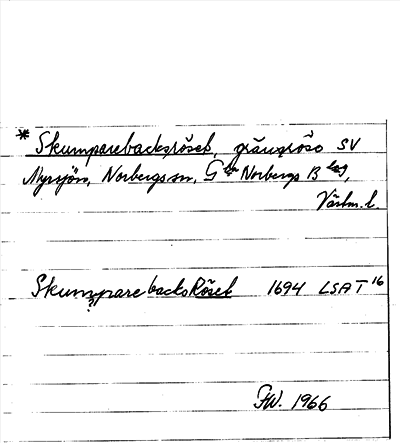 * Skumparebacksröset, gränsröse SV
Myrsjön, Norbergs sn, G:la Norbergs Blag,
Västm. l.
Skumparebacksröset 1694 LSA T 16
?
FW. 1966